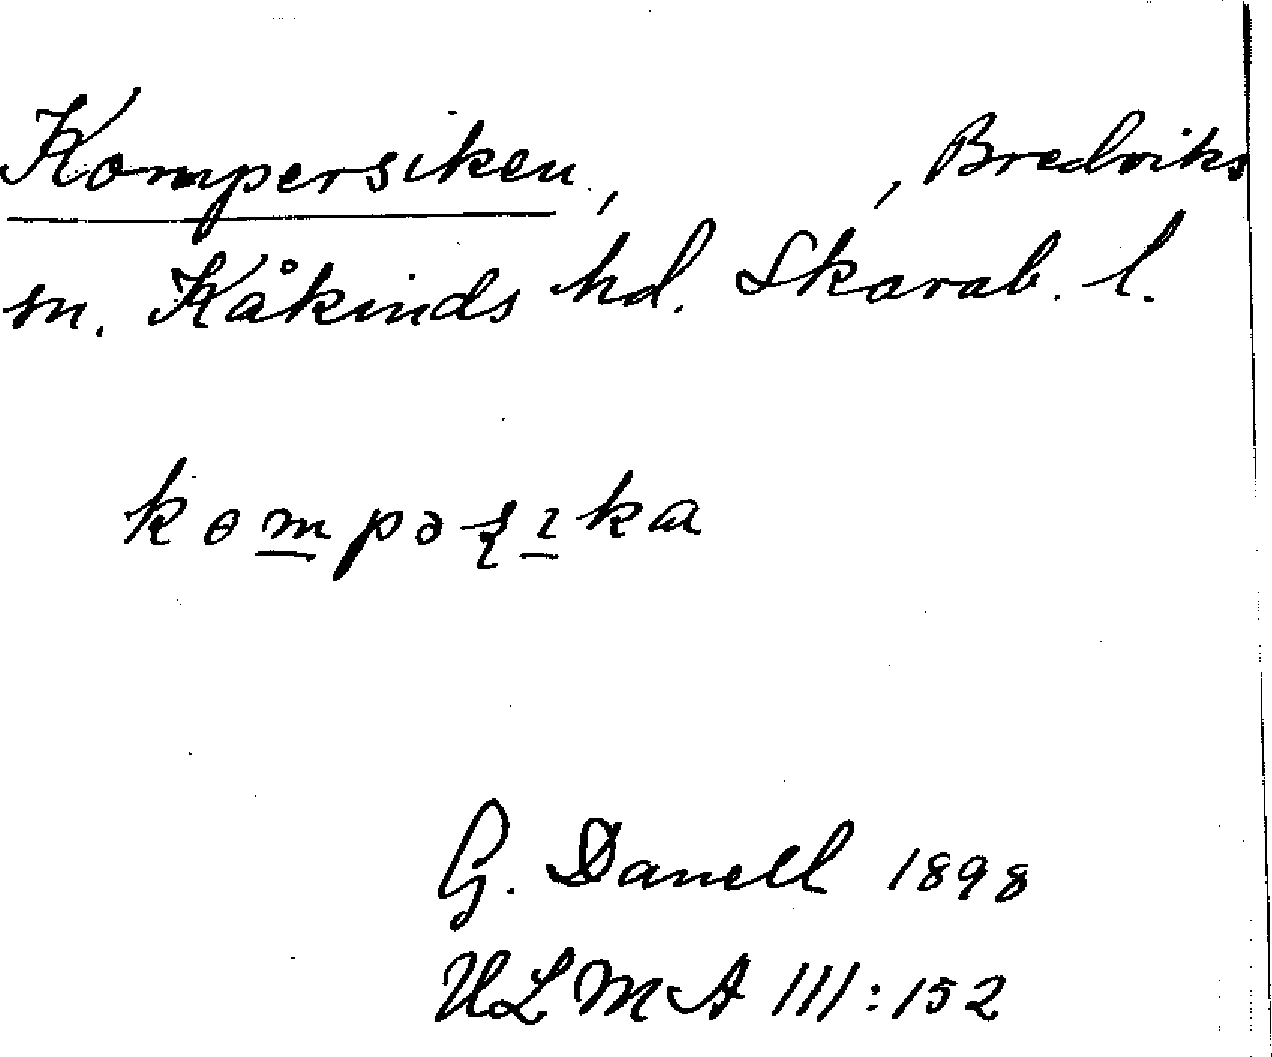 Kompersiken, , Bredviks
sn. Kåkinds hd. Skarab. l.
kɵmpəʂɪka
G. Danell 1898
ULMA III:152